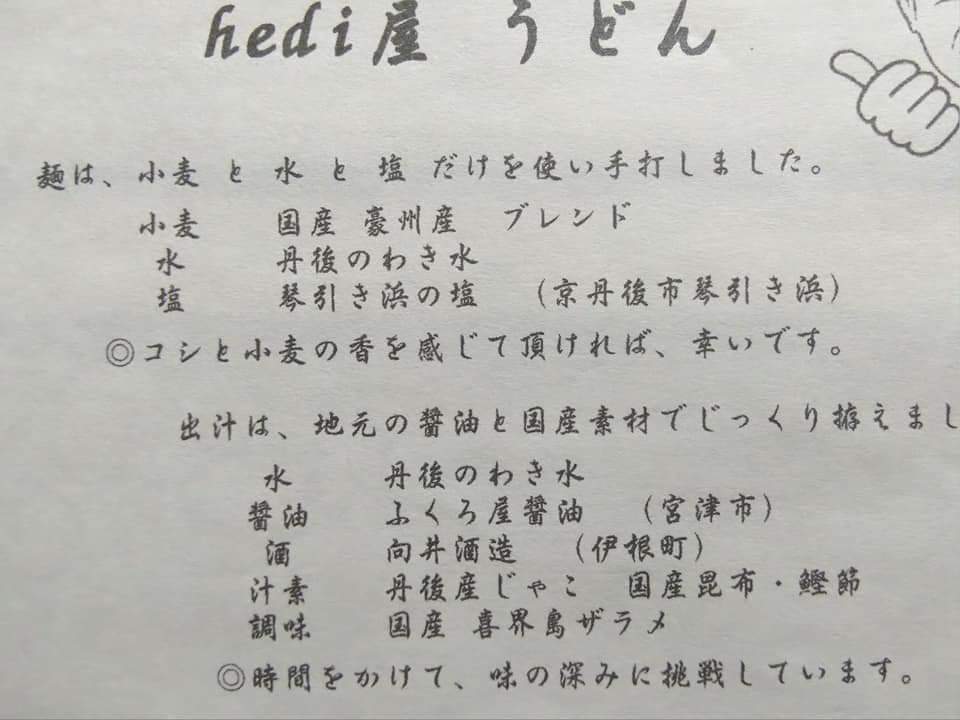 hedi屋 うどん
麺は、小麦 と 水 と 塩 だけを使い手打しました。
小麦 国産 豪州産 ブレンド
水 丹後のわき水
塩 琴引き浜の塩 （京丹後市琴引き浜）
◎コシと小麦の香を感じて頂ければ、幸いです。
出汁は、地元の醤油と国産素材でじっくり拵えまし
水 丹後のわき水
醤油 ふくろ屋醤油 （宮津市）
酒 向井酒造 （伊根町）
汁素 丹後産じゃこ 国産昆布・鰹節
調味 国産 喜界島ザラメ
◎時間をかけて、味の深みに挑戦しています。